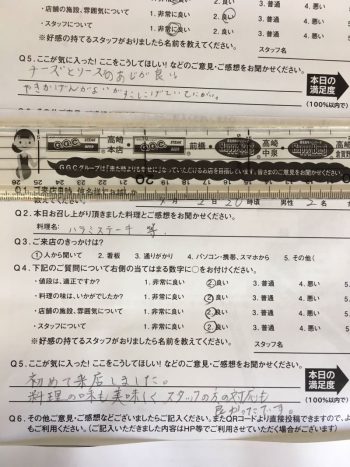 ・店舗の施設、雰囲気について 1. 非常に良い 2. 良い 3. 普通 4. 悪い
・スタッフについて 1. 非常に良い 2. 良い 3. 普通 4. 悪い
※好感の持てるスタッフがおりましたら名前を教えてください。 スタッフ名
Q5. ここが気に入った! ここをこうしてほしい! などのご意見・ご感想をお聞かせください。
本日の満足度
(100%以内で)
チーズとソースのあじが良い
GGC
高崎本店
前橋
高崎中泉
GGCグループは
Q2. 本日お召し上がり頂きました料理とご感想をお聞かせください。
料理名: ハラミステーキ 等
Q3. ご来店のきっかけは?
①人から聞いて 2. 看板 3. 通りがかり 4. パソコン・携帯、スマホから 5. その他(
Q4. 下記のご質問について右側の当てはまる数字に○をお付けください。
・値段は、適正ですか? 1. 非常に良い ②良い 3. 普通 4. 悪い
・料理の味は、いかがでしたか? 1. 非常に良い ②良い 3. 普通 4. 悪い
・店舗の施設、雰囲気について 1. 非常に良い ②良い 3. 普通 4. 悪い
・スタッフについて 1. 非常に良い ②良い 3. 普通 4. 悪い
※好感の持てるスタッフがおりましたら名前を教えてください。 スタッフ名
Q5. ここが気に入った! ここをこうしてほしい! などのご意見・ご感想をお聞かせください。
本日の満足度
(100%以内で)
初めて来店しました。
料理の味も美味しく スタッフの方の対応も
良かったです。
Q6. その他ご意見・ご感想などございましたらご記入ください。またQRコードより直接投稿できますので、よ
もご利用ください。(ご記入いただきました内容はHP等でご利用させていただく場合がございます)